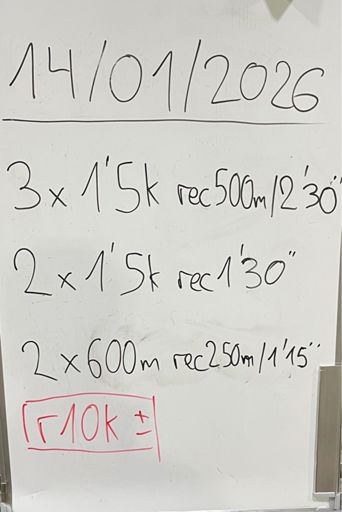 14/01/2026
3x 1'5k rec500m/2'30"
2x1'5k rec1'30"
2x600m rec250m/1'15"
r10k ±